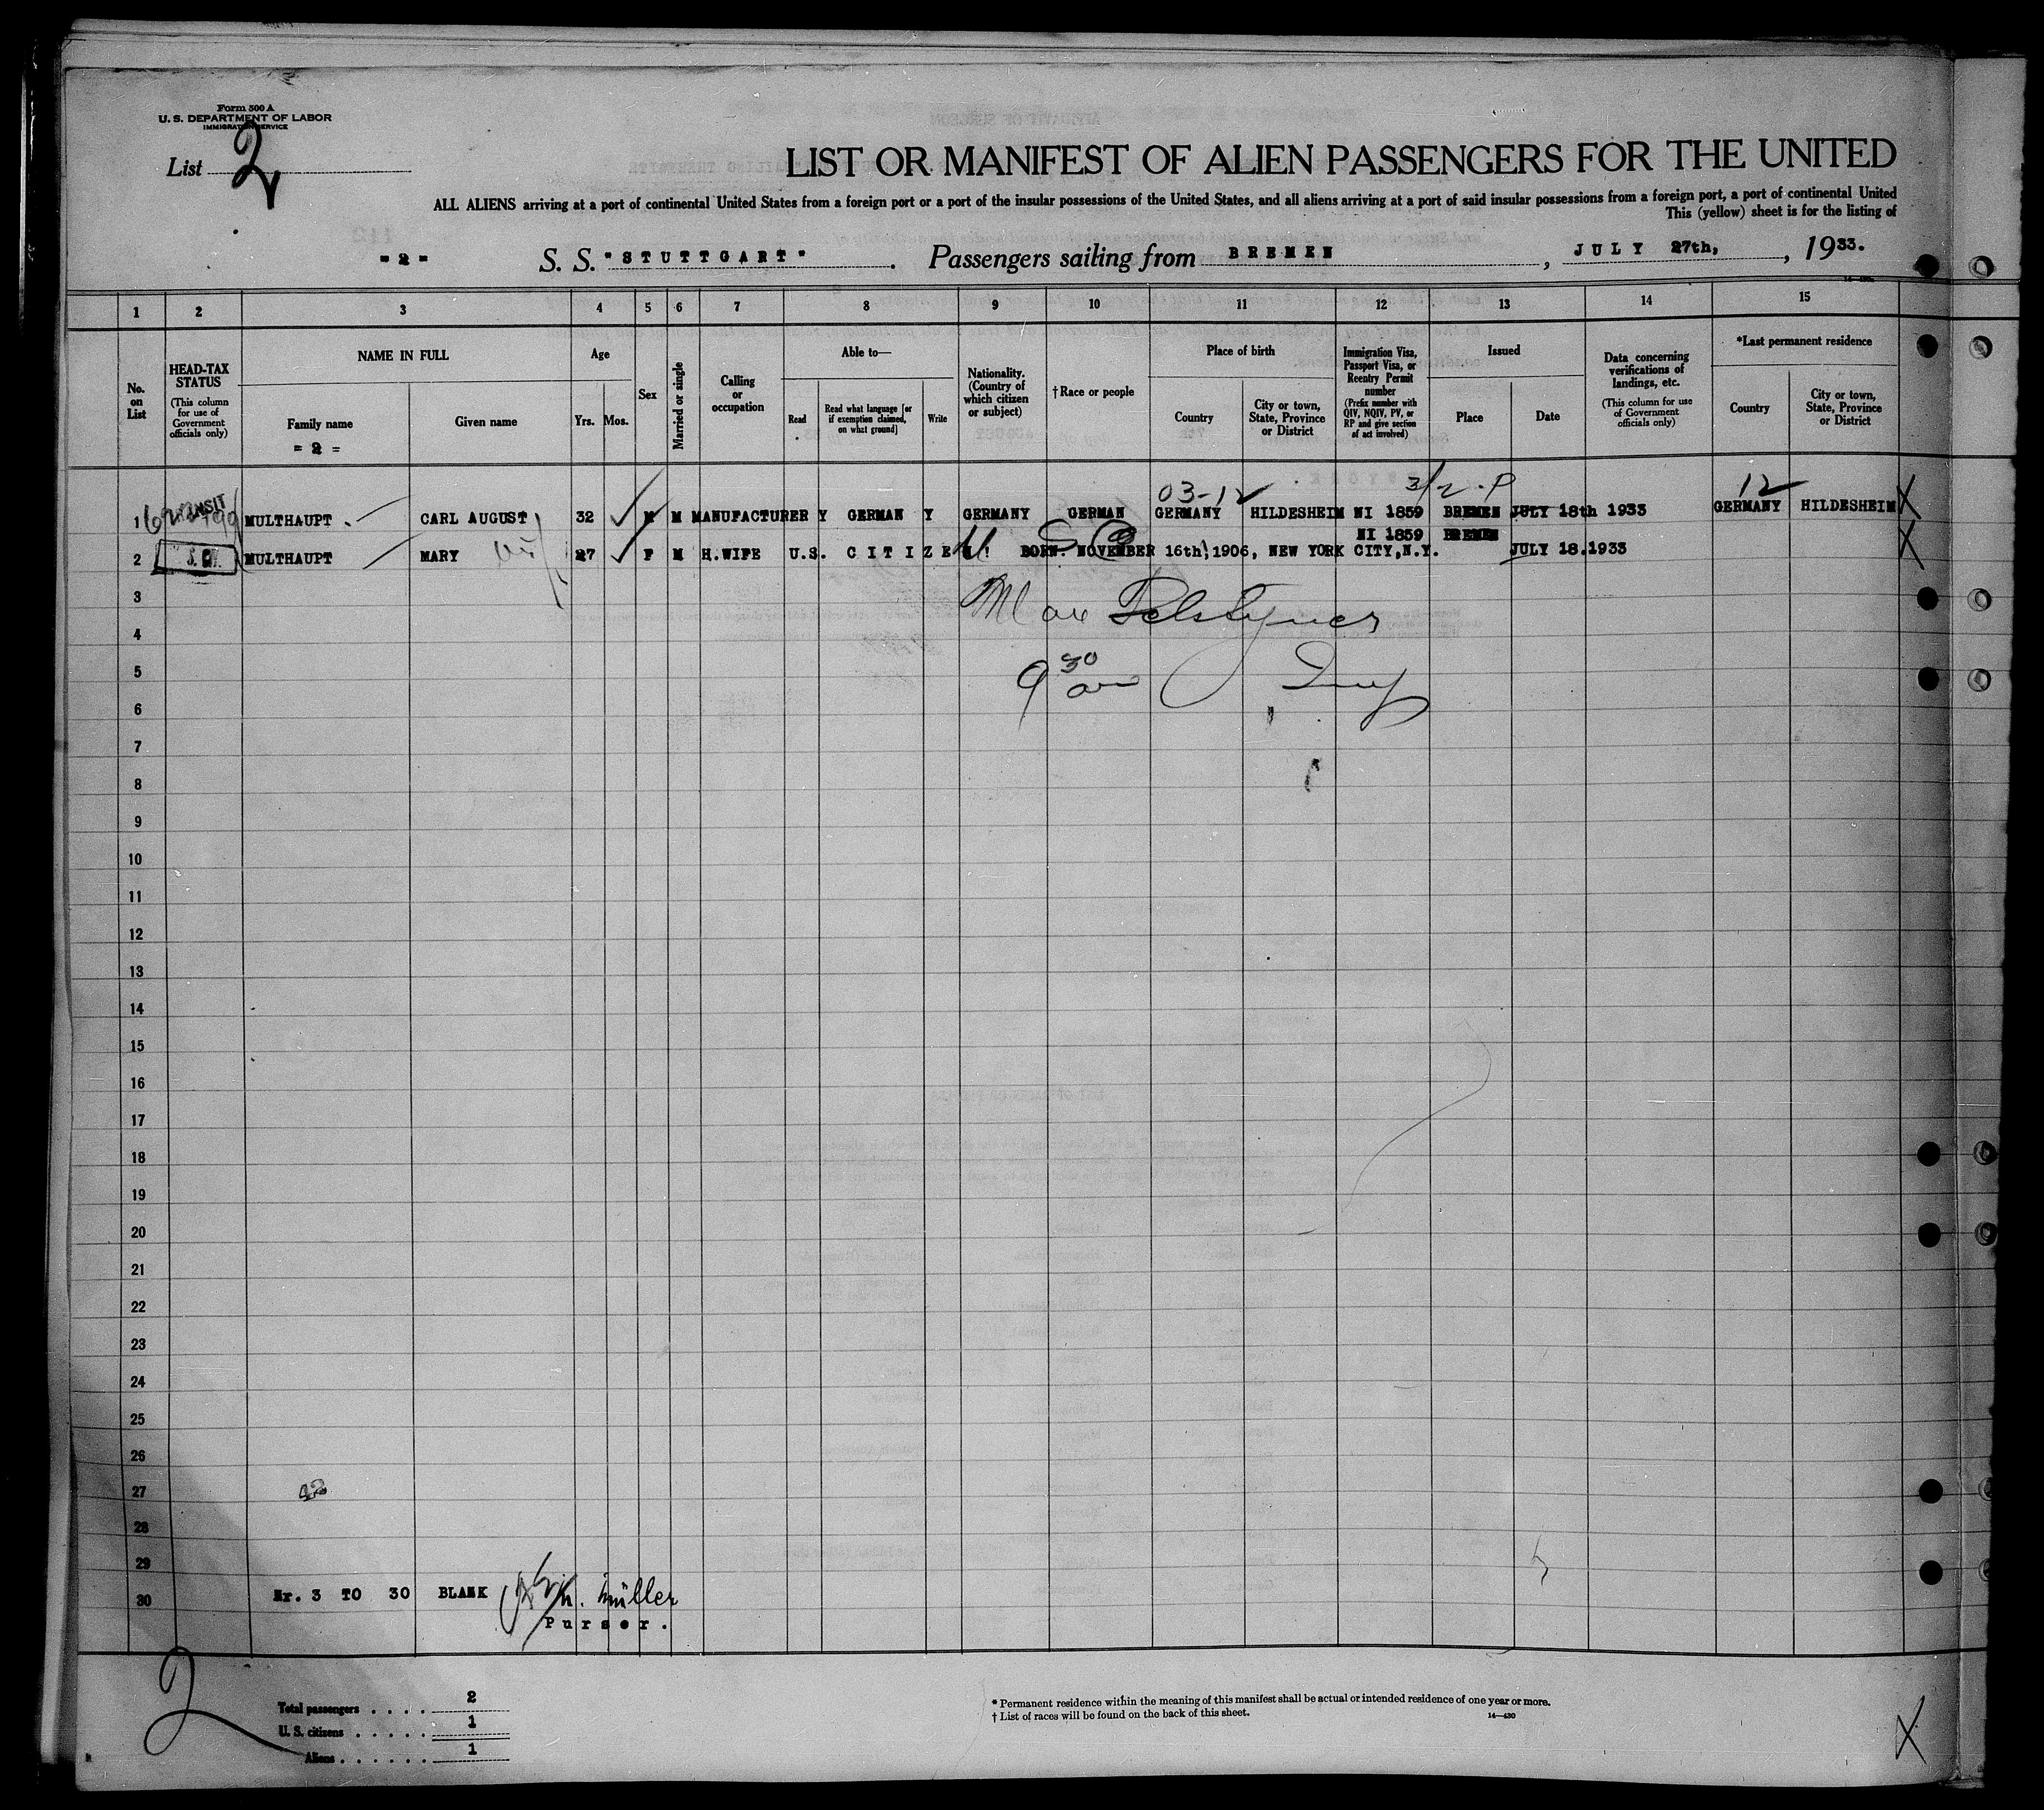 Form 500 A
U. S. DEPARTMENT OF LABOR
IMMIGRATION SERVICE
List 2
LIST OR MANIFEST OF ALIEN PASSENGERS FOR THE UNITED
ALL ALIENS arriving at a port of continental United States from a foreign port or a port of the insular possessions of the United States, and all aliens arriving at a port of said insular possessions from a foreign port, a port of continental United
This (yellow) sheet is for the listing of
- 2 - S. S. "STUTTGART" . Passengers sailing from BREMEN , JULY 27th, , 1933.
1 2 3 4 5 6 7 8 9 10 11 12 13 14 15
No. on List
HEAD-TAX STATUS (This column for use of Government officials only)
NAME IN FULL
Family name
= 2 =
Given name
Age
Yrs. Mos.
Sex
Married or single
Calling or occupation
Able to—
Read
Read what language [or if exemption claimed, on what ground]
Write
Nationality. (Country of which citizen or subject)
†Race or people
Place of birth
Country
City or town, State, Province or District
Immigration Visa, Passport Visa, or Reentry Permit number (Prefix number with QIV, NQIV, PV, or RP and give section of act involved)
Issued
Place
Date
Data concerning verifications of landings, etc. (This column for use of Government officials only)
*Last permanent residence
Country
City or town, State, Province or District
03-12 3/2 P 12
1 TRANSIT MULTHAUPT CARL AUGUST 32 M M MANUFACTURER Y GERMAN Y GERMANY GERMAN GERMANY HILDESHEIM NI 1859 BREMEN JULY 18th 1933 GERMANY HILDESHEIM X
NI 1859 BREMEN
2 MULTHAUPT MARY 27 F M H.WIFE U.S. CITIZEN! BORN. NOVEMBER 16th, 1906, NEW YORK CITY, N.Y. JULY 18.1933 X
3
4
5 9 30
6
7
8
9
10
11
12
13
14
15
16
17
18
19
20
21
22
23
24
25
26
27 42
28
29
30 Nr. 3 TO 30 BLANK Müller
Purser.
2
Total passengers . . . . 2
U. S. citizens . . . . . 1
Aliens . . . . . . 1
* Permanent residence within the meaning of this manifest shall be actual or intended residence of one year or more.
† List of races will be found on the back of this sheet. 14—430
X